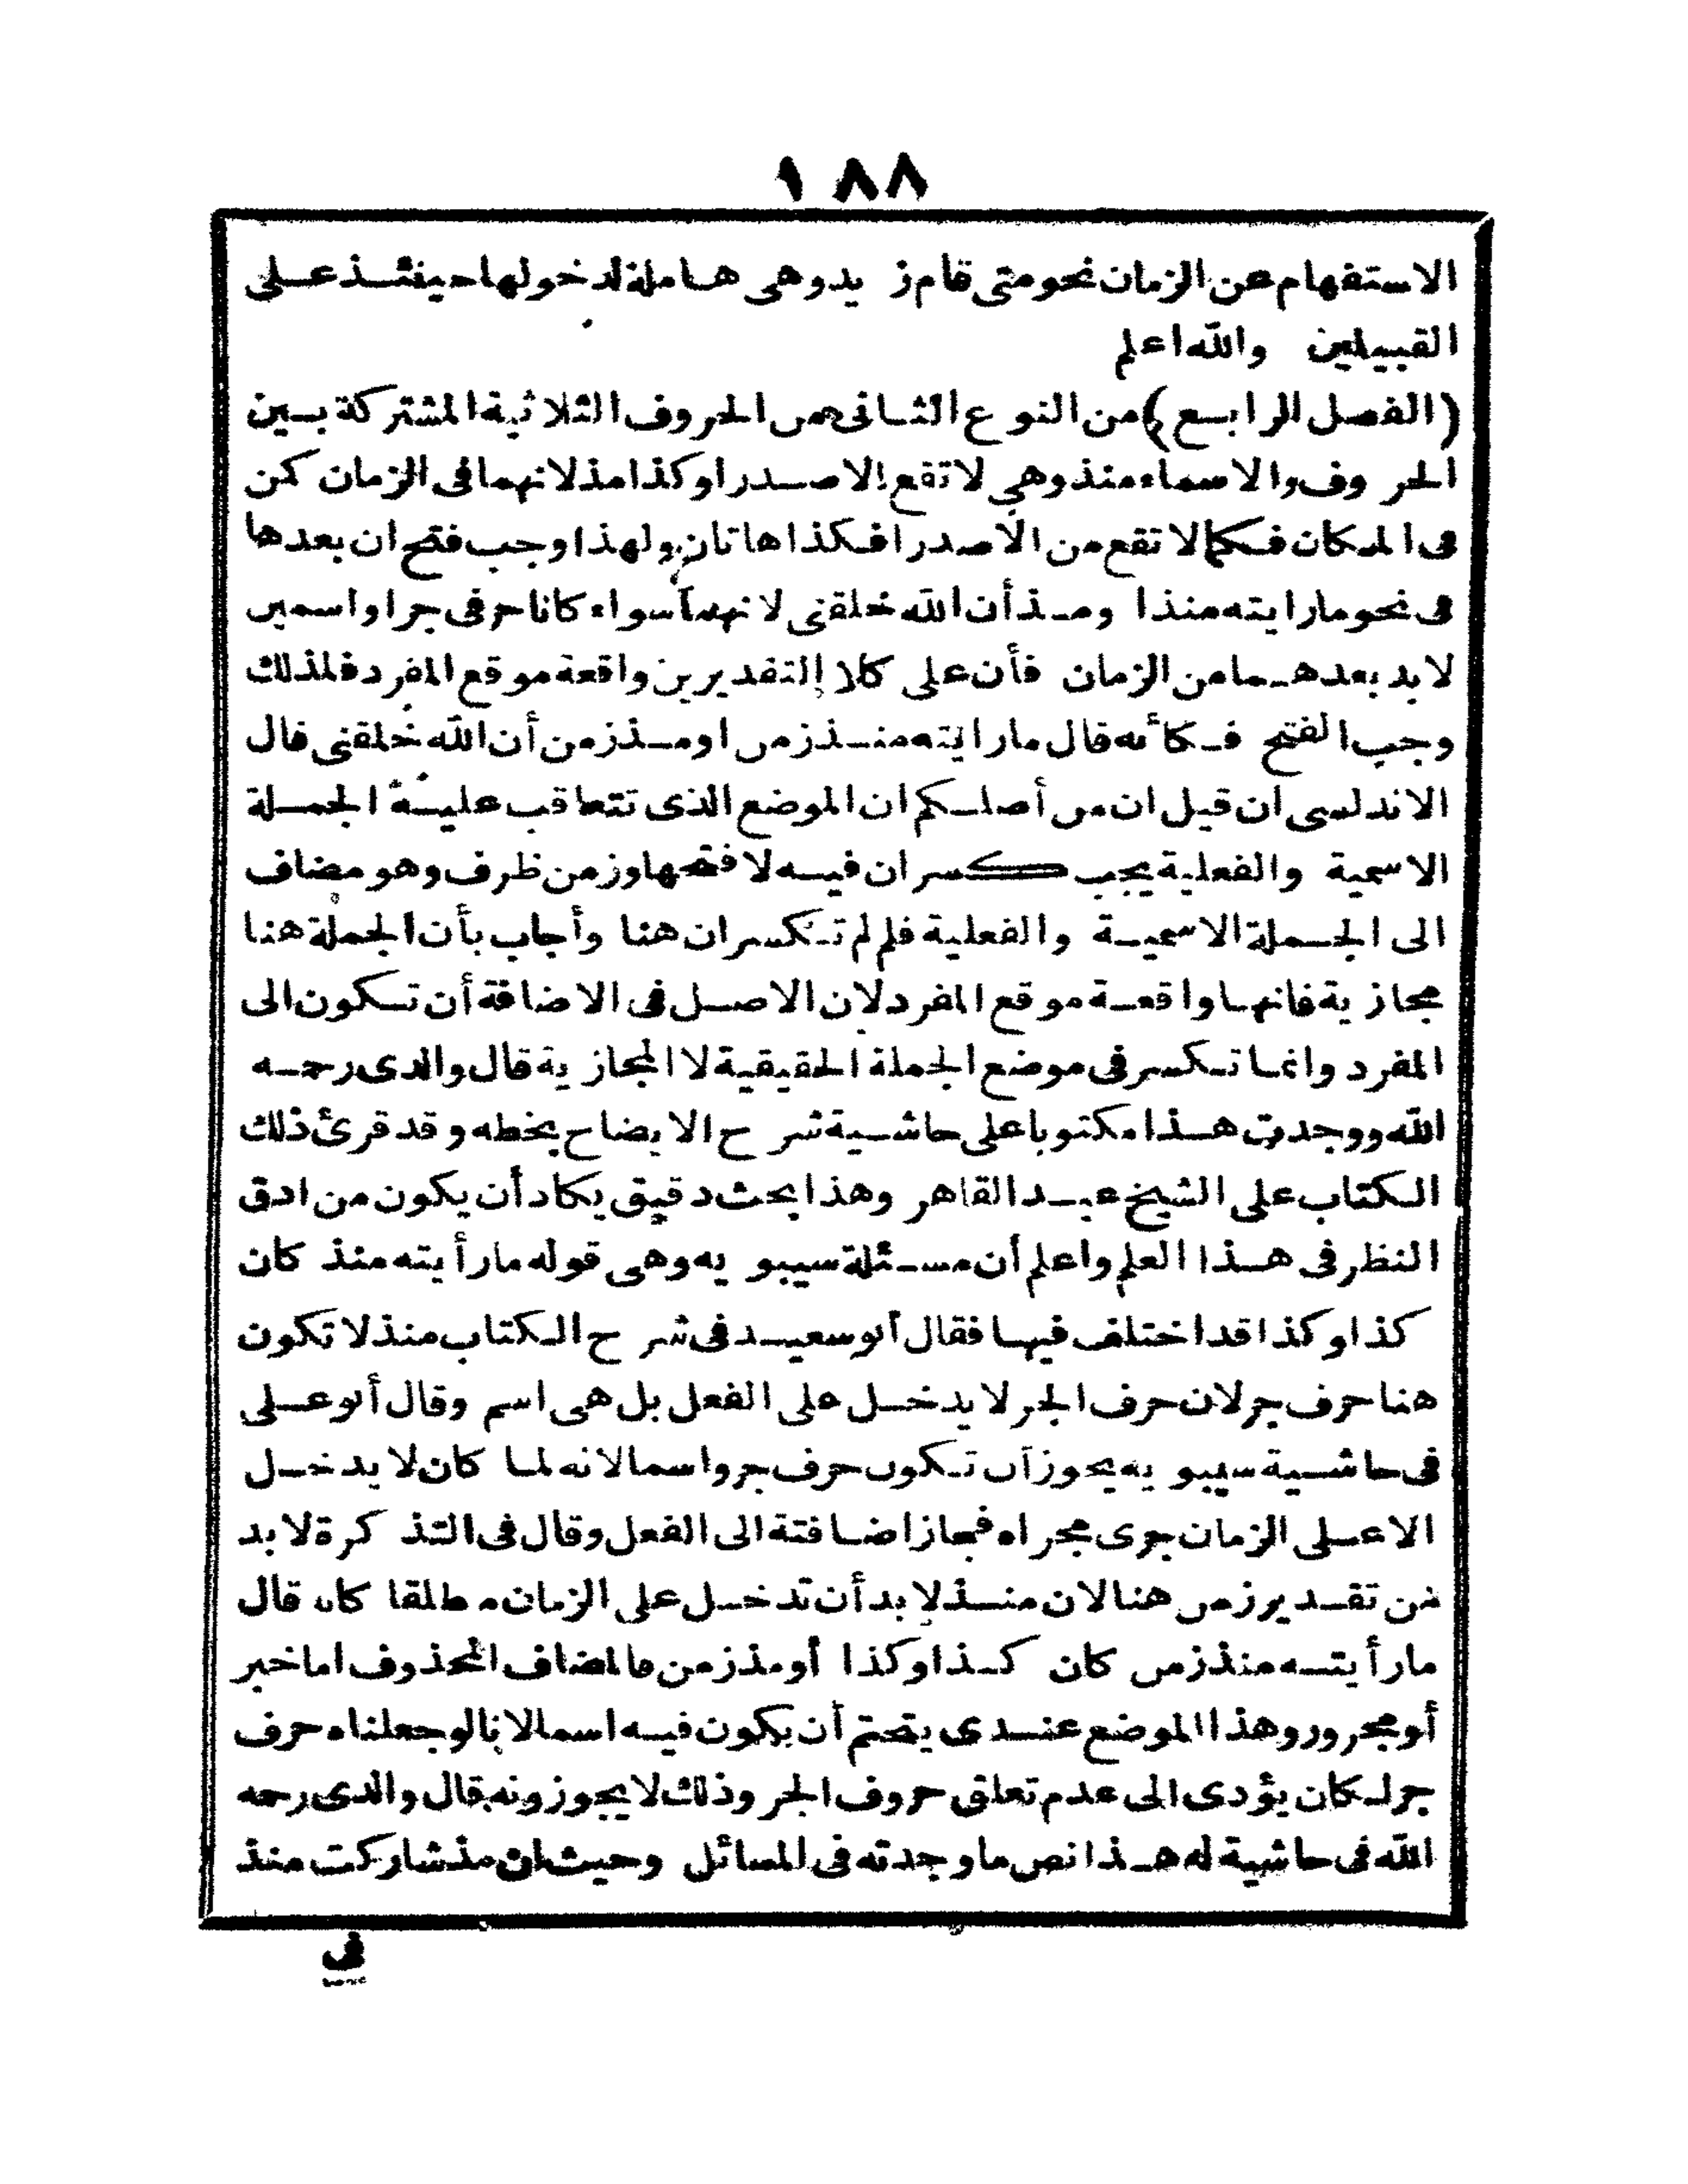 ١٨٨
الاستفهام عن الزمان نحو متى قام زيد وهى هاملة لدخولها حينئذ على
القبيلين والله اعلم
(الفصل الرابع) من النوع الثانى من الحروف الثلاثية المشتركة بين
الحروف والاسماء منذ وهى لا تقع الا صدرا وكذا مذ لانهما فى الزمان كمن
فى المكان فكما لا تقع من الا صدرا فكذا هاتان ولهذا وجب فتح ان بعدها
فى نحو ما رايته منذ ا ومذ أن الله خلقنى لانهما سواء كانا حرفى جر او اسمين
لا بد بعدهما من الزمان فأن على كلا التقديرين واقعة موقع المفرد فلذلك
وجب الفتح فكأنه قال ما رايته منذ زمن او مذ زمن أن الله خلقنى قال
الاندلسى ان قيل ان من أصلكم ان الموضع الذى تتعاقب عليه الجملة
الاسمية والفعلية يجب كسر ان فيه لا فتحها وزمن ظرف وهو مضاف
الى الجملة الاسمية والفعلية فلم لم تكسر ان هنا وأجاب بأن الجملة هنا
مجازية فانها واقعة موقع المفرد لان الاصل فى الاضافة أن تكون الى
المفرد وانما تكسر فى موضع الجملة الحقيقية لا المجازية قال والدى رحمه
الله ووجدت هذا مكتوبا على حاشية شرح الايضاح بخطه وقد قرئ ذلك
الكتاب على الشيخ عبد القاهر وهذا بحث دقيق يكاد أن يكون من ادق
النظر فى هذا العلم واعلم أن مسئلة سيبويه وهى قوله ما رأيته منذ كان
كذا وكذا قد اختلف فيها فقال أبو سعيد فى شرح الكتاب منذ لا تكون
هنا حرف جر لان حرف الجر لا يدخل على الفعل بل هى اسم وقال أبو على
فى حاشية سيبويه يجوز أن تكون حرف جر واسما لانه لما كان لا يدخل
الا على الزمان جرى مجراه فجاز اضافتة الى الفعل وقال فى التذكرة لا بد
من تقدير زمن هنا لان منذ لا بد أن تدخل على الزمان مطلقا كان قال
ما رأيته منذ زمن كان كذا وكذا أو مذ زمن فالمضاف المحذوف اما خبر
أو مجرور وهذا الموضع عندى يتحتم أن يكون فيه اسما لانا لو جعلناه حرف
جر لكان يؤدى الى عدم تعلق حروف الجر وذلك لا يجوزونه قال والدى رحمه
الله فى حاشية له هذا نص ما وجدته فى المسائل وحيث ان مذ شاركت منذ
فى